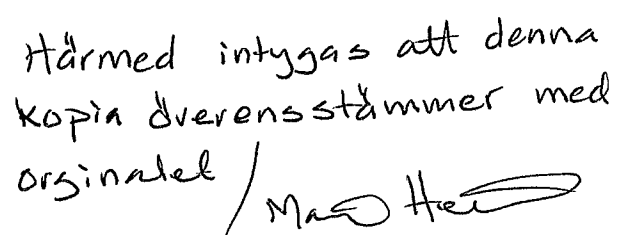 Härmed intygas att denna
kopia överensstämmer med
orginalet /